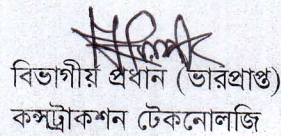 বিভাগীয় প্রধান (ভারপ্রাপ্ত)
কন্সট্রাকশন টেকনোলজি